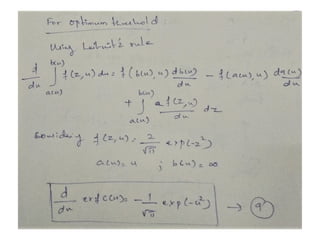 For optimum threshold
Using Leibnitz rule
d/du ∫_{a(u)}^{b(u)} f(z,u) du = f(b(u),u) db(u)/du - f(a(u),u) da(u)/du
+ ∫_{a(u)}^{b(u)} ∂f(z,u)/du dz
Considering f(z,u) = 2/√π exp(-z²)
a(u) = u ; b(u) = ∞
d/du erfc(u) = - 1/√π exp(-u²) → 9